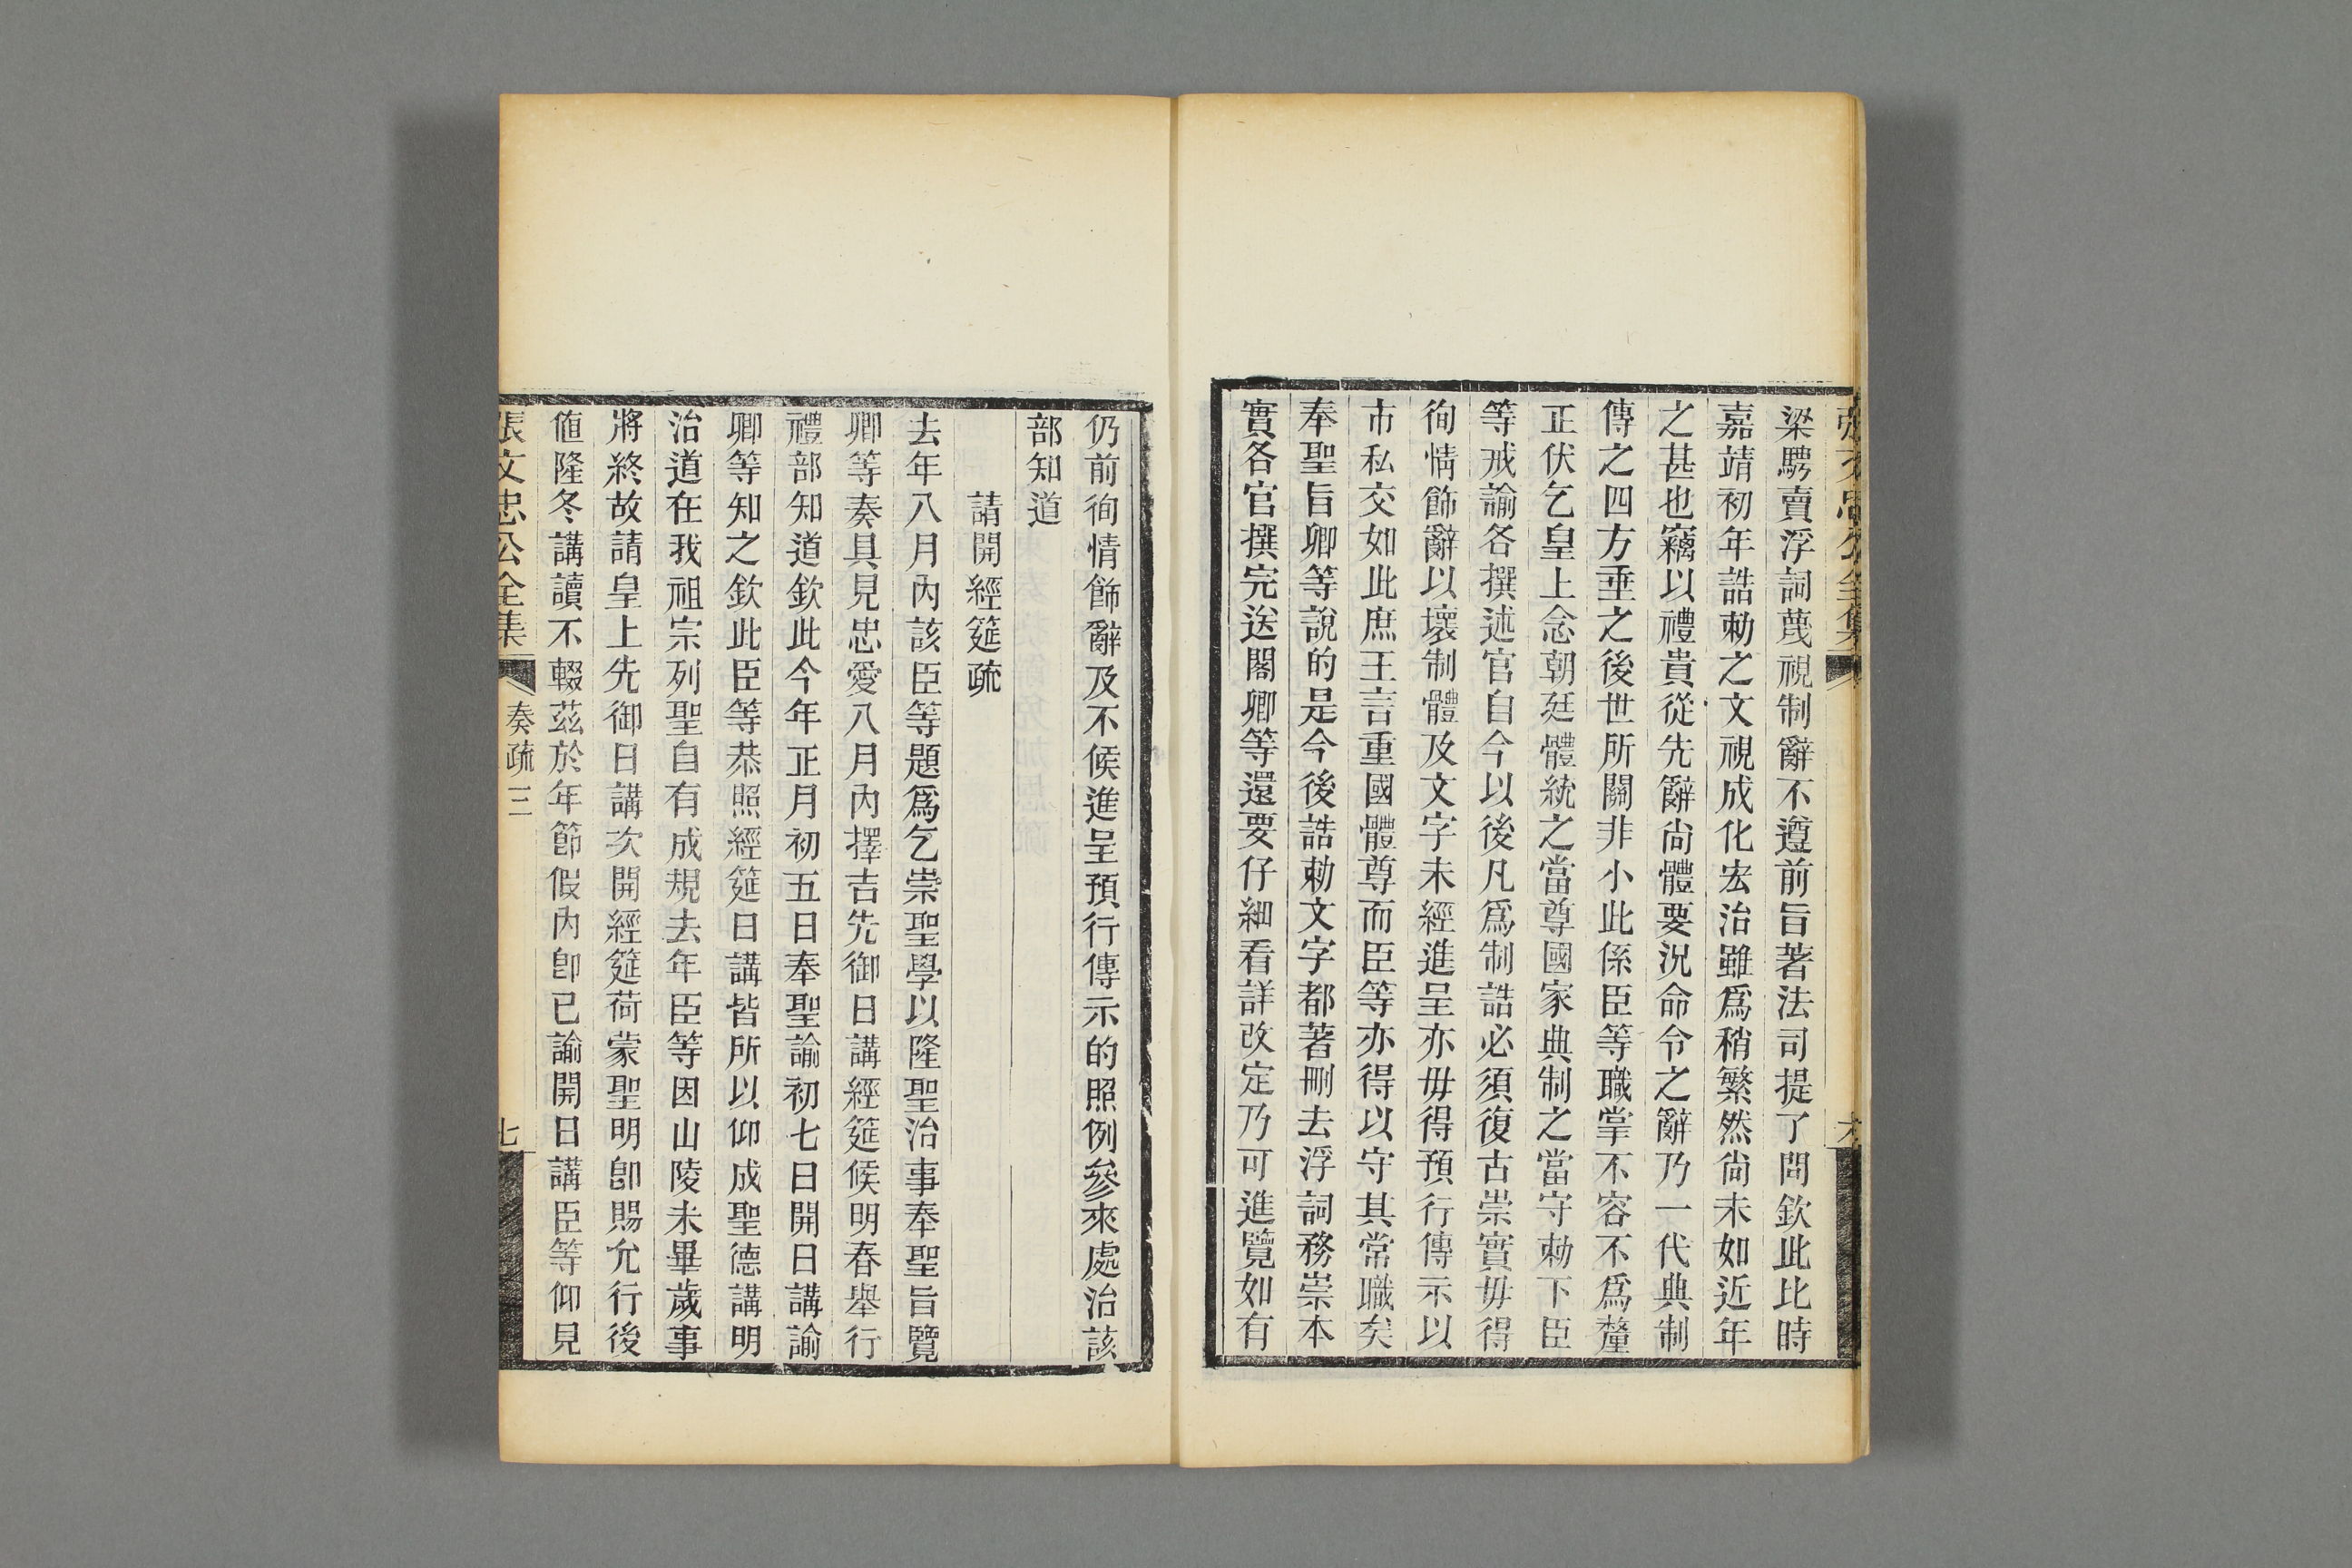 張文忠公全集
六
梁騁賣浮詞蔑視制辭不遵前旨著法司提了問欽此比時
嘉靖初年誥勅之文視成化宏治雖爲稍繁然尙未如近年
之甚也竊以禮貴從先辭尙體要況命令之辭乃一代典制
傳之四方垂之後世所關非小此係臣等職掌不容不爲釐
正伏乞皇上念朝廷體統之當尊國家典制之當守勅下臣
等戒諭各撰述官自今以後凡爲制誥必須復古崇實毋得
徇情飾辭以壞制體及文字未經進呈亦毋得預行傳示以
市私交如此庶王言重國體尊而臣等亦得以守其常職矣
奉聖旨卿等說的是今後誥勅文字都著刪去浮詞務崇本
實各官撰完送閣卿等還要仔細看詳改定乃可進覽如有
仍前徇情飾辭及不候進呈預行傳示的照例參來處治該
部知道
請開經筵疏
去年八月內該臣等題爲乞崇聖學以隆聖治事奉聖旨覽
卿等奏具見忠愛八月內擇吉先御日講經筵候明春舉行
禮部知道欽此今年正月初五日奉聖諭初七日開日講諭
卿等知之欽此臣等恭照經筵日講皆所以仰成聖德講明
治道在我祖宗列聖自有成規去年臣等因山陵未畢歲事
將終故請皇上先御日講次開經筵荷蒙聖明卽賜允行後
値隆冬講讀不輟茲於年節假內卽已諭開日講臣等仰見
張文忠公全集
奏疏三
七